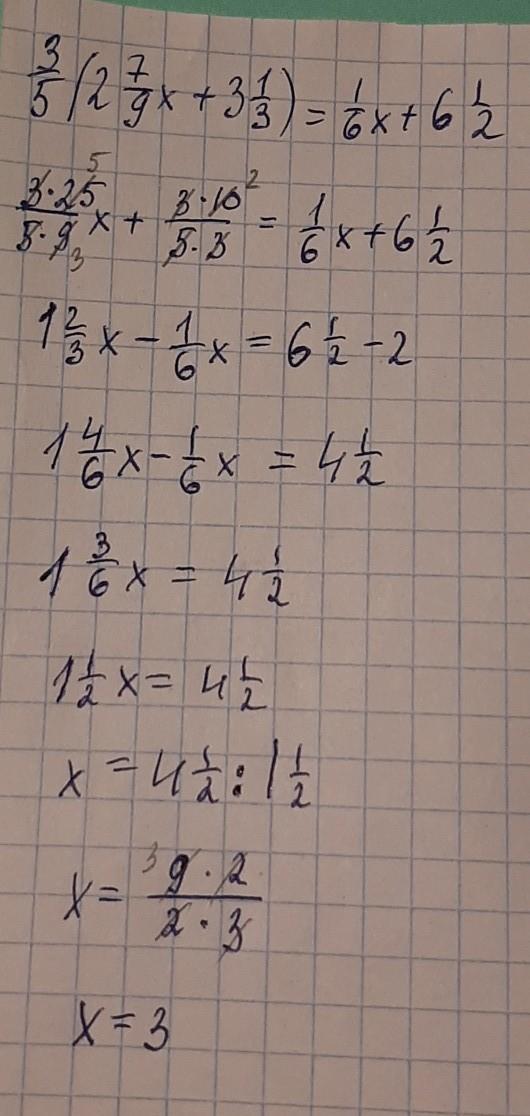 3/5 (2 7/9 x + 3 1/3) = 1/6 x + 6 1/2
3·25 5/5·9 3 x + 3·10 2/5·3 = 1/6 x + 6 1/2
1 2/3 x - 1/6 x = 6 1/2 - 2
1 4/6 x - 1/6 x = 4 1/2
1 3/6 x = 4 1/2
1 1/2 x = 4 1/2
x = 4 1/2 : 1 1/2
x = 3 9·2/2·3
x = 3